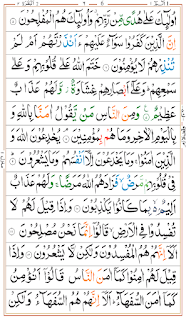 اُولٰٓئِكَ عَلٰى هُدًى مِّنْ رَّبِّهِمْ وَاُولٰٓئِكَ هُمُ الْمُفْلِحُوْنَ
اِنَّ الَّذِيْنَ كَفَرُوْا سَوَآءٌ عَلَيْهِمْ ءَاَنْذَرْتَهُمْ اَمْ لَمْ
تُنْذِرْهُمْ لَا يُؤْمِنُوْنَ خَتَمَ اللّٰهُ عَلٰى قُلُوْبِهِمْ وَعَلٰى
سَمْعِهِمْ وَعَلٰٓى اَبْصَارِهِمْ غِشَاوَةٌ وَّلَهُمْ عَذَابٌ
عَظِيْمٌ وَمِنَ النَّاسِ مَنْ يَّقُوْلُ اٰمَنَّا بِاللّٰهِ وَ
بِالْيَوْمِ الْاٰخِرِ وَمَا هُمْ بِمُؤْمِنِيْنَ يُخٰدِعُوْنَ اللّٰهَ وَ
الَّذِيْنَ اٰمَنُوْا وَمَا يَخْدَعُوْنَ اِلَّآ اَنْفُسَهُمْ وَمَا يَشْعُرُوْنَ
فِيْ قُلُوْبِهِمْ مَّرَضٌ فَزَادَهُمُ اللّٰهُ مَرَضًا وَلَهُمْ عَذَابٌ
اَلِيْمٌ بِمَا كَانُوْا يَكْذِبُوْنَ وَاِذَا قِيْلَ لَهُمْ لَا
تُفْسِدُوْا فِي الْاَرْضِ قَالُوْٓا اِنَّمَا نَحْنُ مُصْلِحُوْنَ
اَلَآ اِنَّهُمْ هُمُ الْمُفْسِدُوْنَ وَلٰكِنْ لَّا يَشْعُرُوْنَ وَاِذَا
قِيْلَ لَهُمْ اٰمِنُوْا كَمَآ اٰمَنَ النَّاسُ قَالُوْٓا اَنُؤْمِنُ
كَمَآ اٰمَنَ السُّفَهَآءُ اَلَآ اِنَّهُمْ هُمُ السُّفَهَآءُ وَلٰكِنْ